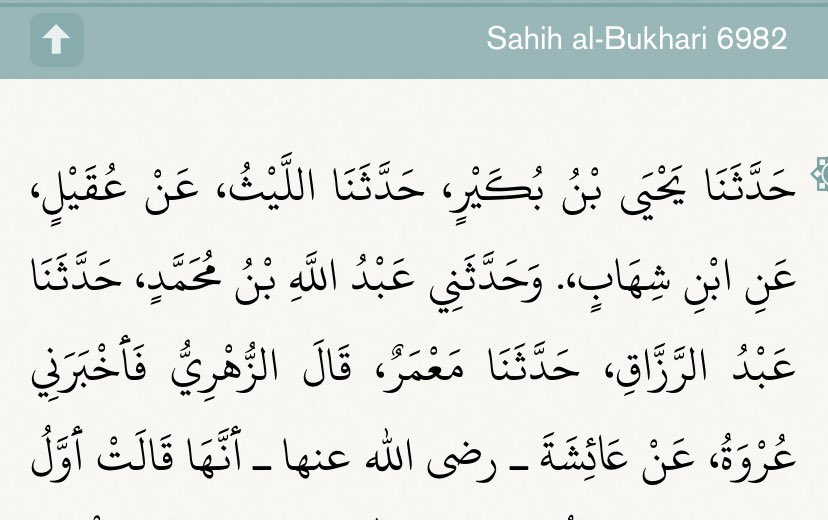 Sahih al-Bukhari 6982
حَدَّثَنَا يَحْيَى بْنُ بُكَيْرٍ، حَدَّثَنَا اللَّيْثُ، عَنْ عُقَيْلٍ،
عَنِ ابْنِ شِهَابٍ،‏.‏ وَحَدَّثَنِي عَبْدُ اللَّهِ بْنُ مُحَمَّدٍ، حَدَّثَنَا
عَبْدُ الرَّزَّاقِ، حَدَّثَنَا مَعْمَرٌ، قَالَ الزُّهْرِيُّ فَأَخْبَرَنِي
عُرْوَةُ، عَنْ عَائِشَةَ ـ رضى الله عنها ـ أَنَّهَا قَالَتْ أَوَّلُ